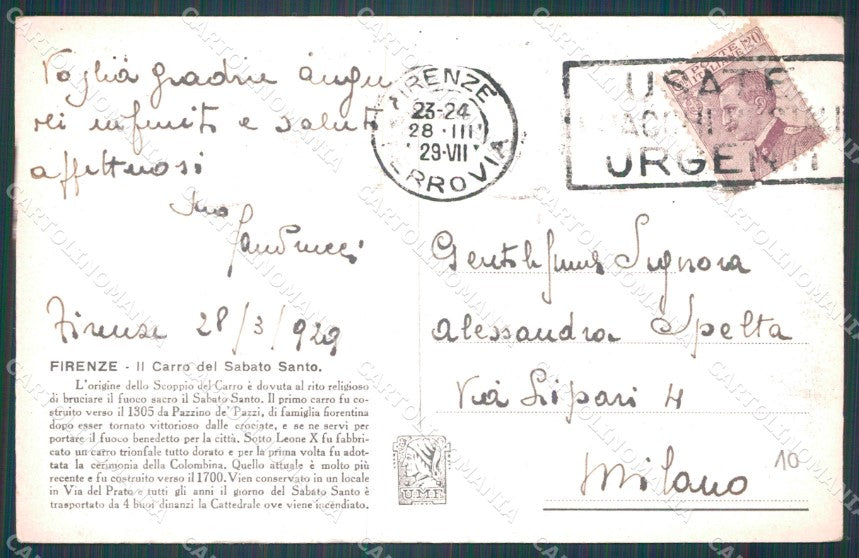 Voglia gradire augu
ri infiniti e saluti
affettuosi
Suo
Firenze 28/3/929
FIRENZE - Il Carro del Sabato Santo.
L'origine dello Scoppio del Carro è dovuta al rito religioso
di bruciare il fuoco sacro il Sabato Santo. Il primo carro fu co-
struito verso il 1305 da Pazzino de' Pazzi, di famiglia fiorentina
dopo esser tornato vittorioso dalle crociate, e se ne servì per
portare il fuoco benedetto per la città. Sotto Leone X fu fabbri-
cato un carro trionfale tutto dorato e per la prima volta fu adot-
tata la cerimonia della Colombina. Quello attuale è molto più
recente e fu costruito verso il 1700. Vien conservato in un locale
in Via del Prato e tutti gli anni il giorno del Sabato Santo è
trasportato da 4 buoi dinanzi la Cattedrale ove viene incendiato.
U.M.F.
FIRENZE
23-24
28 · III
29·VII
FERROVIA
USATE
URGENTI
POSTE
20
Gentilissima Signora
Alessandra Spelta
Via Lipari 4
Milano
10
CARTOLINOMANIA